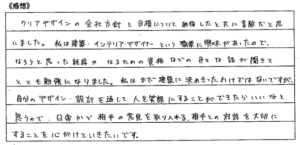 《感想》
クリアデザインの会社方針と目標について納得したと共に素敵だと思
いました。私は建築・インテリアデザイナーという職業に興味があったので、
なろうと思った経緯やなるための資格などの色々な話が聞けて
とても勉強になりました。私はまだ建築に決めきったわけではないですが、
自分のデザイン・設計を通して人を笑顔にすることができたらいいなと
思うので、日常から相手の意見を取り入れる、相手との対話を大切に
することを心がけていきたいです。